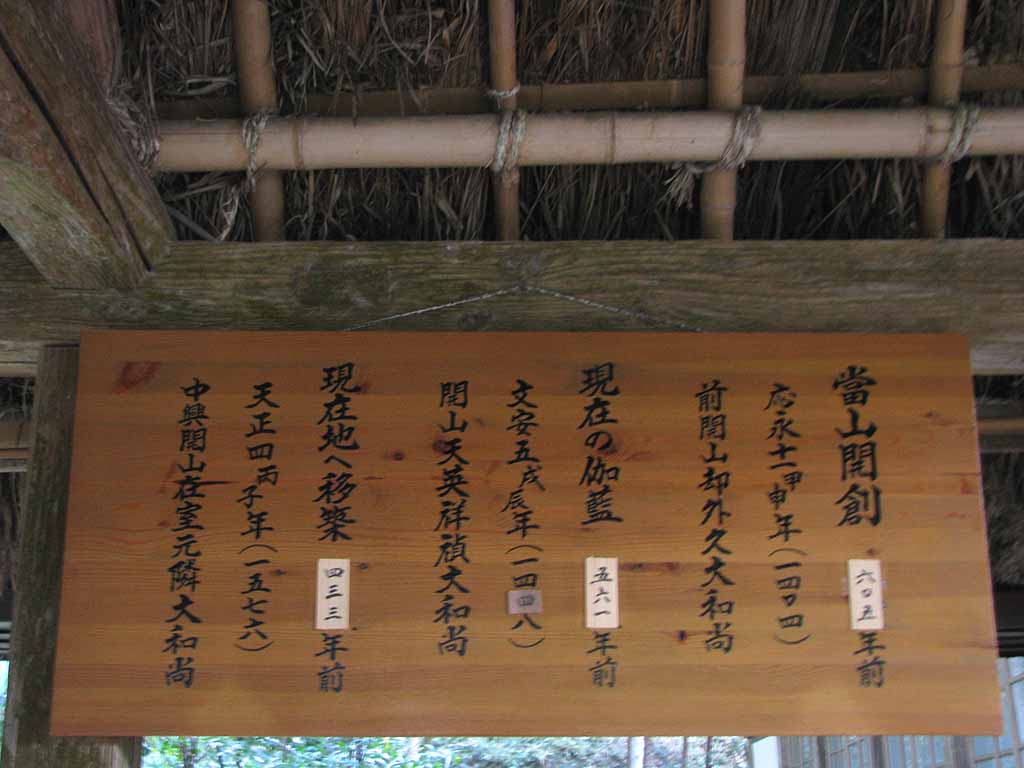 當山開創 六〇五年前
応永十一甲申年（一四〇四）
前開山却外久大和尚
現在の伽藍 五六一年前
文安五戊辰年（一四四八）
開山天英祥禎大和尚
現在地へ移築 四三三年前
天正四丙子年（一五七六）
中興開山在室元隣大和尚